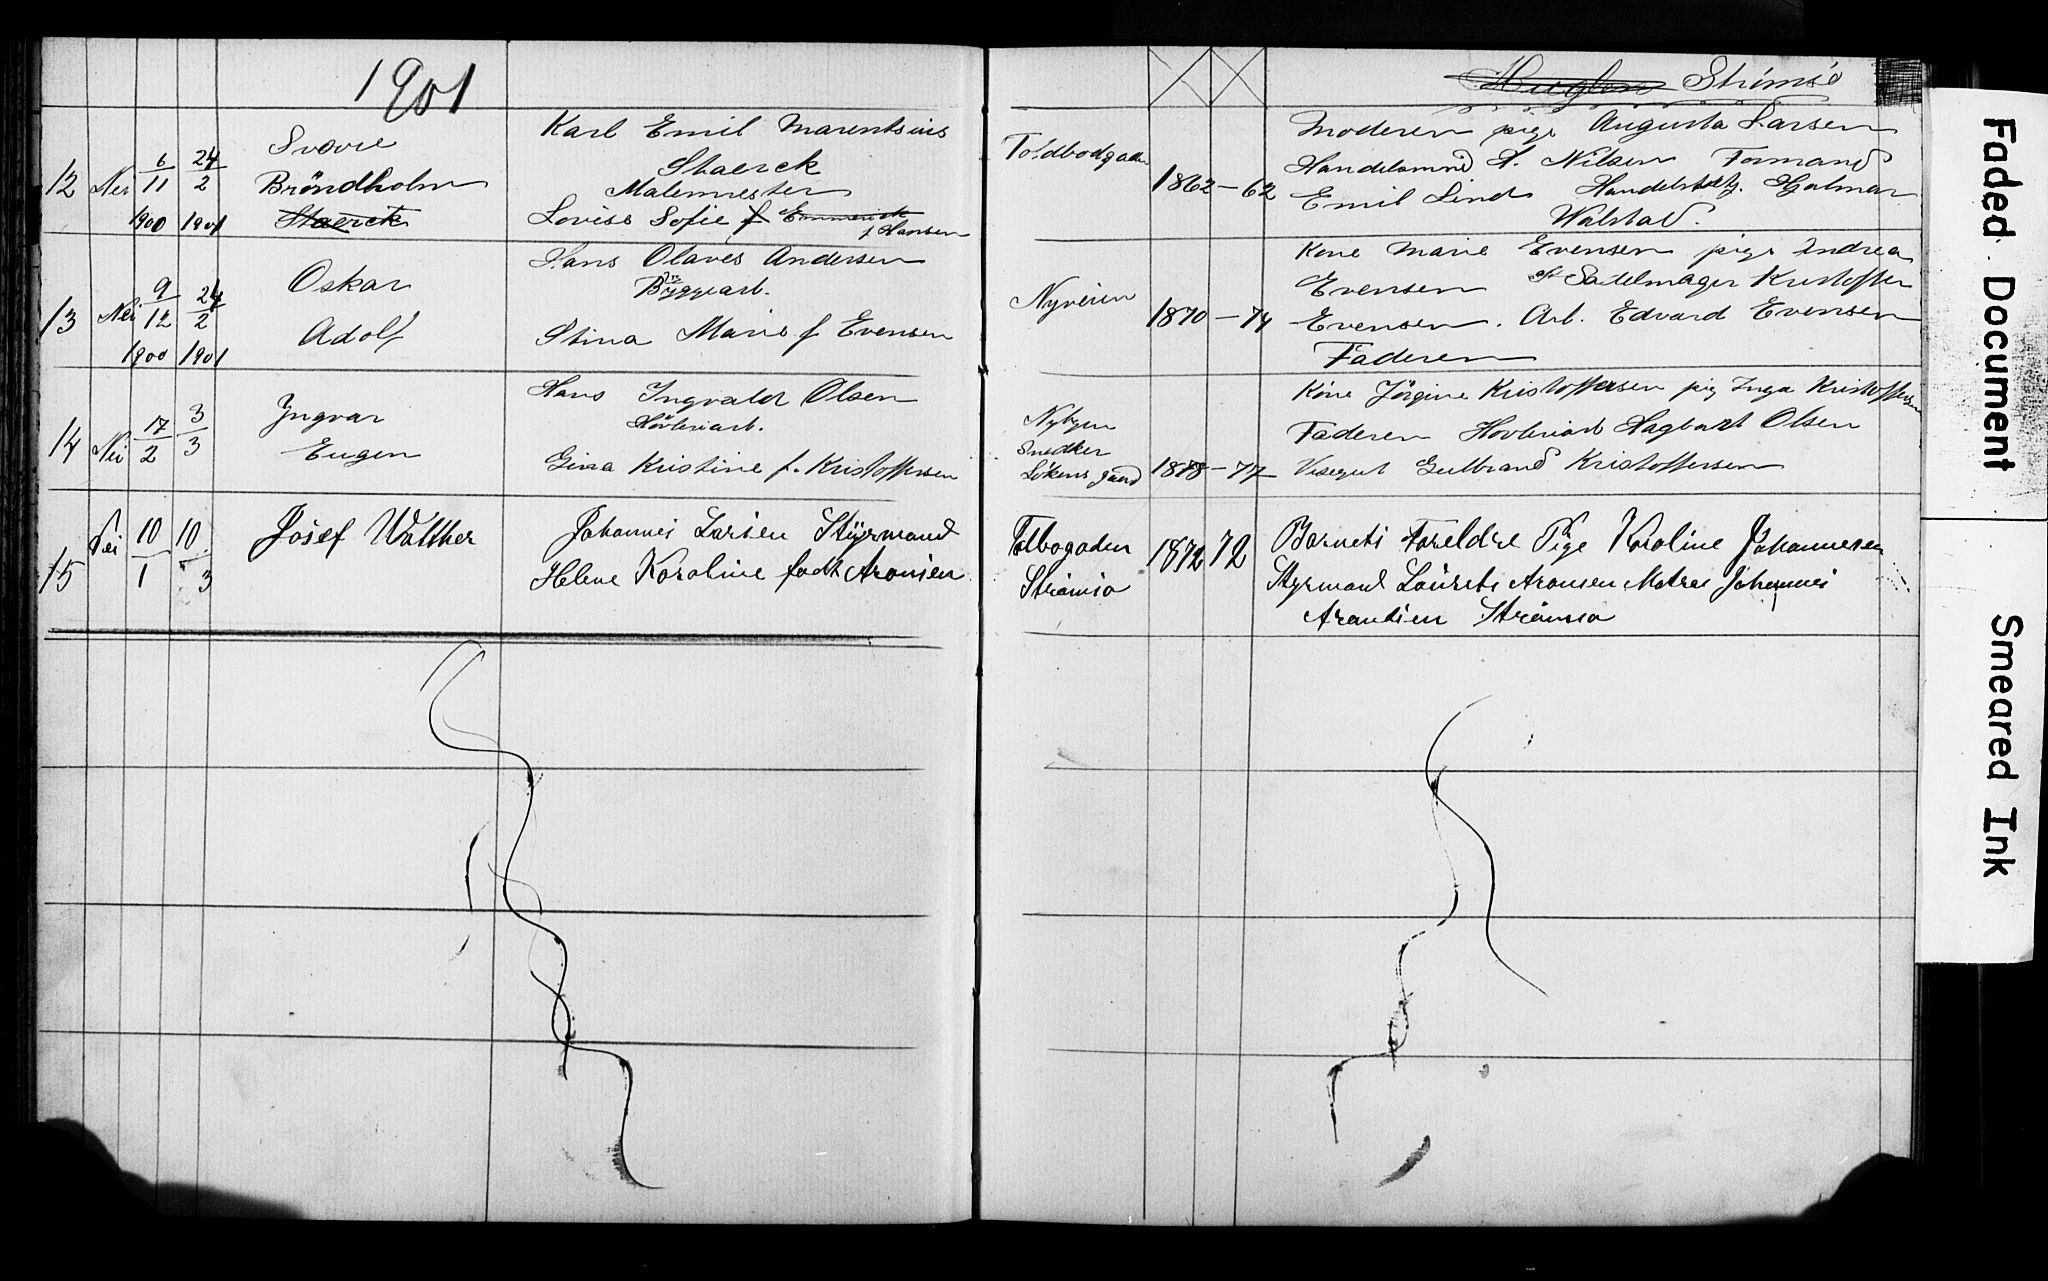 1901
Strömsö
12 Nei 6/11 1900 24/2 1901
Bröndholm
Staerck
Karl Emil Marentsius
Staerck
Malermester
Lovise Sofie f Emmerick
f Hansen
Toldbodgaden
1862-62
Moderen pige Augusta Larsen
Handelsmnd A. Nilsen Formand
Emil Lind Hjalmar
Walstad.
13 Nei 9/12 1900 24/2 1901
Oskar
Adolf
Hans Olaves Andersen
Byggearb.
Stina Marie f Evensen
Nyveien
1870-74
Kone Marie Evensen pige Andrea
Evensen Sadelmager Kristoffer
Evensen. Arb. Edvard Evensen
Faderen
14 Nei 17/2 3/3
Yngvar
Eugen
Hans Ingvald Olsen
Hövleriarb.
Gina Kristine f. Kristoffersen
Nybyen
Snedker
Lökens gaard
1878-77
Kone Jörgine Kristoffersen pig Inga Kristoffersen
Faderen Hovleriarb Hagbart Olsen
Visegut Gulbrand Kristoffersen
15 Nei 10/1 10/3
Josef Walther
Johannes Larsen Styrmand
Helene Karoline født Aronsen
Tolbogaden
Strømsø
1872 72
Barnets Foreldre Pige Karoline Johannesen
Styrmand Laurets Aronsen Matros Johannes
Arentsen Strømsø
Faded Document
Smeared Ink